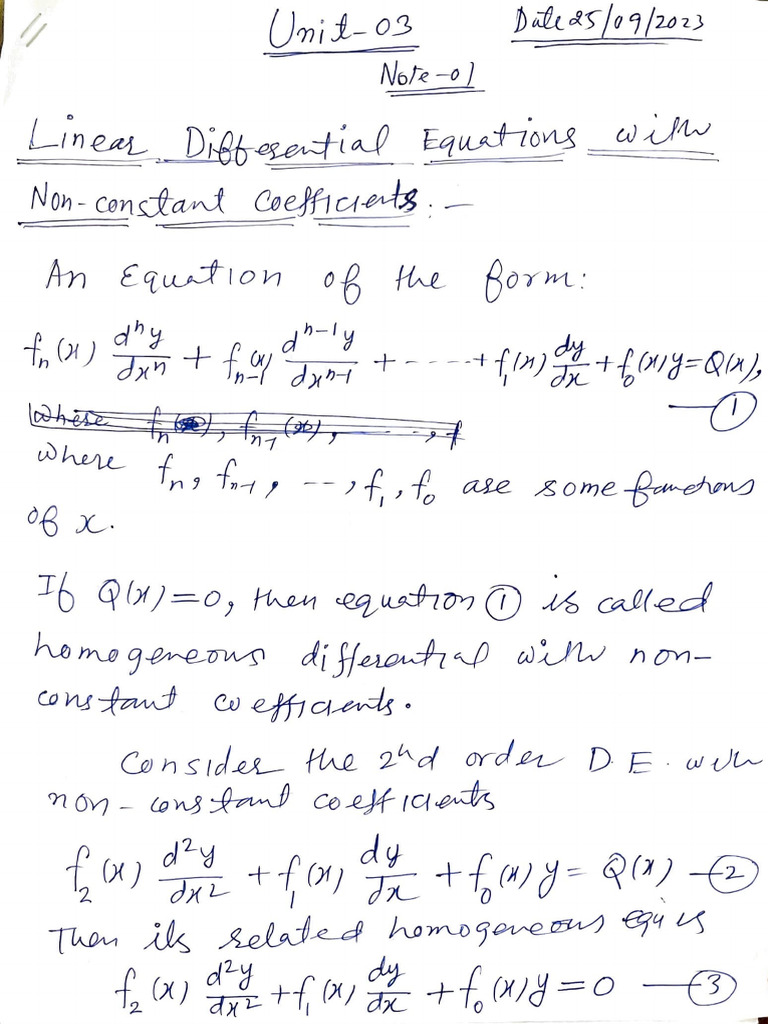 Unit-03 Date 25/09/2023
Note-01
Linear Differential Equations with
Non-constant Coefficients:-
An Equation of the form:
fₙ(x) dⁿy/dxⁿ + fₙ₋₁(x) dⁿ⁻¹y/dxⁿ⁻¹ + - - - - - + f₁(x) dy/dx + f₀(x)y = Q(x),
—①
where fₙ, fₙ₋₁, - - -, f₁, f₀ are some functions
of x.
If Q(x)=0, then equation ① is called
homogeneous differential with non-
constant coefficients.
Consider the 2nd order D.E. with
non-constant coefficients
f₂(x) d²y/dx² + f₁(x) dy/dx + f₀(x)y = Q(x) —②
Then its related homogeneous eqⁿ is
f₂(x) d²y/dx² + f₁(x) dy/dx + f₀(x)y = 0 —③